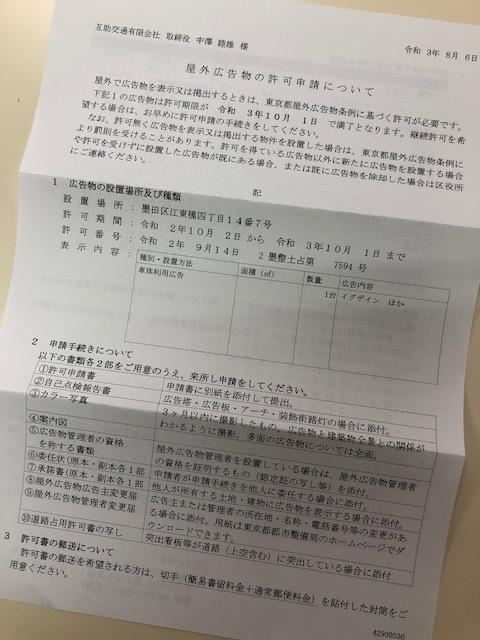 互助交通有限会社 取締役 中澤 睦雄 様
令和 3年 8月 6日
屋外広告物の許可申請について
屋外で広告物を表示又は掲出するときは、東京都屋外広告物条例に基づく許可が必要です。
下記1の広告物は許可期限が 令和 3年10月 1日 で満了となります。継続許可を希
望する場合は、お早めに許可申請の手続きをしてください。
なお、許可無く広告物を表示又は掲出する物件を設置した場合は、東京都屋外広告物条例に
より罰則を受けることがあります。許可を得ている広告物以外に新たに広告物を設置する場合
や許可を受けずに設置した広告物が既にある場合、または既に広告物を除却した場合は区役所
にご連絡ください。
記
1 広告物の設置場所及び種類
設置場所：墨田区江東橋四丁目14番7号
許可期間：令和 2年10月 2日 から 令和 3年10月 1日 まで
許可番号：令和 2年 9月14日 2 墨整土占第 7594 号
表示内容：
種別・設置方法 面積（㎡） 数量 広告内容
車体利用広告 1台 イグザイン ほか
2 申請手続きについて
以下の書類各2部をご用意のうえ、来所し申請をしてください。
①許可申請書 申請書に別紙を添付して提出。
②自己点検報告書 広告塔・広告板・アーチ・装飾街路灯の場合に添付。
③カラー写真 3ヶ月以内に撮影したもの。広告物と建築物全景との関係が
わかるように撮影。多面の広告物については全面。
④案内図
⑤広告物管理者の資格 屋外広告物管理者を設置している場合は、屋外広告物管理者
を称する書類 の資格を証明するもの（認定証の写し等）を添付。
⑥委任状（原本・副本各1部 申請者が申請手続きを他人に委任する場合に添付。
⑦承諾書（原本・副本各1部 他人が所有する土地・建物に広告物を表示する場合に添付。
⑧屋外広告物広告主変更届 広告主または管理者の所在地・名称・電話番号等の変更があ
⑨屋外広告物管理者変更届 る場合に添付。用紙は東京都都市整備局のホームページでダ
ウンロードできます。
⑩道路占用許可書の写し 突出看板等が道路（上空含む）に突出している場合に添付
3 許可書の郵送について
許可書の郵送を希望される方は、切手（簡易書留料金＋通常郵便料金）を貼付した封筒をご
用意ください。
42900036